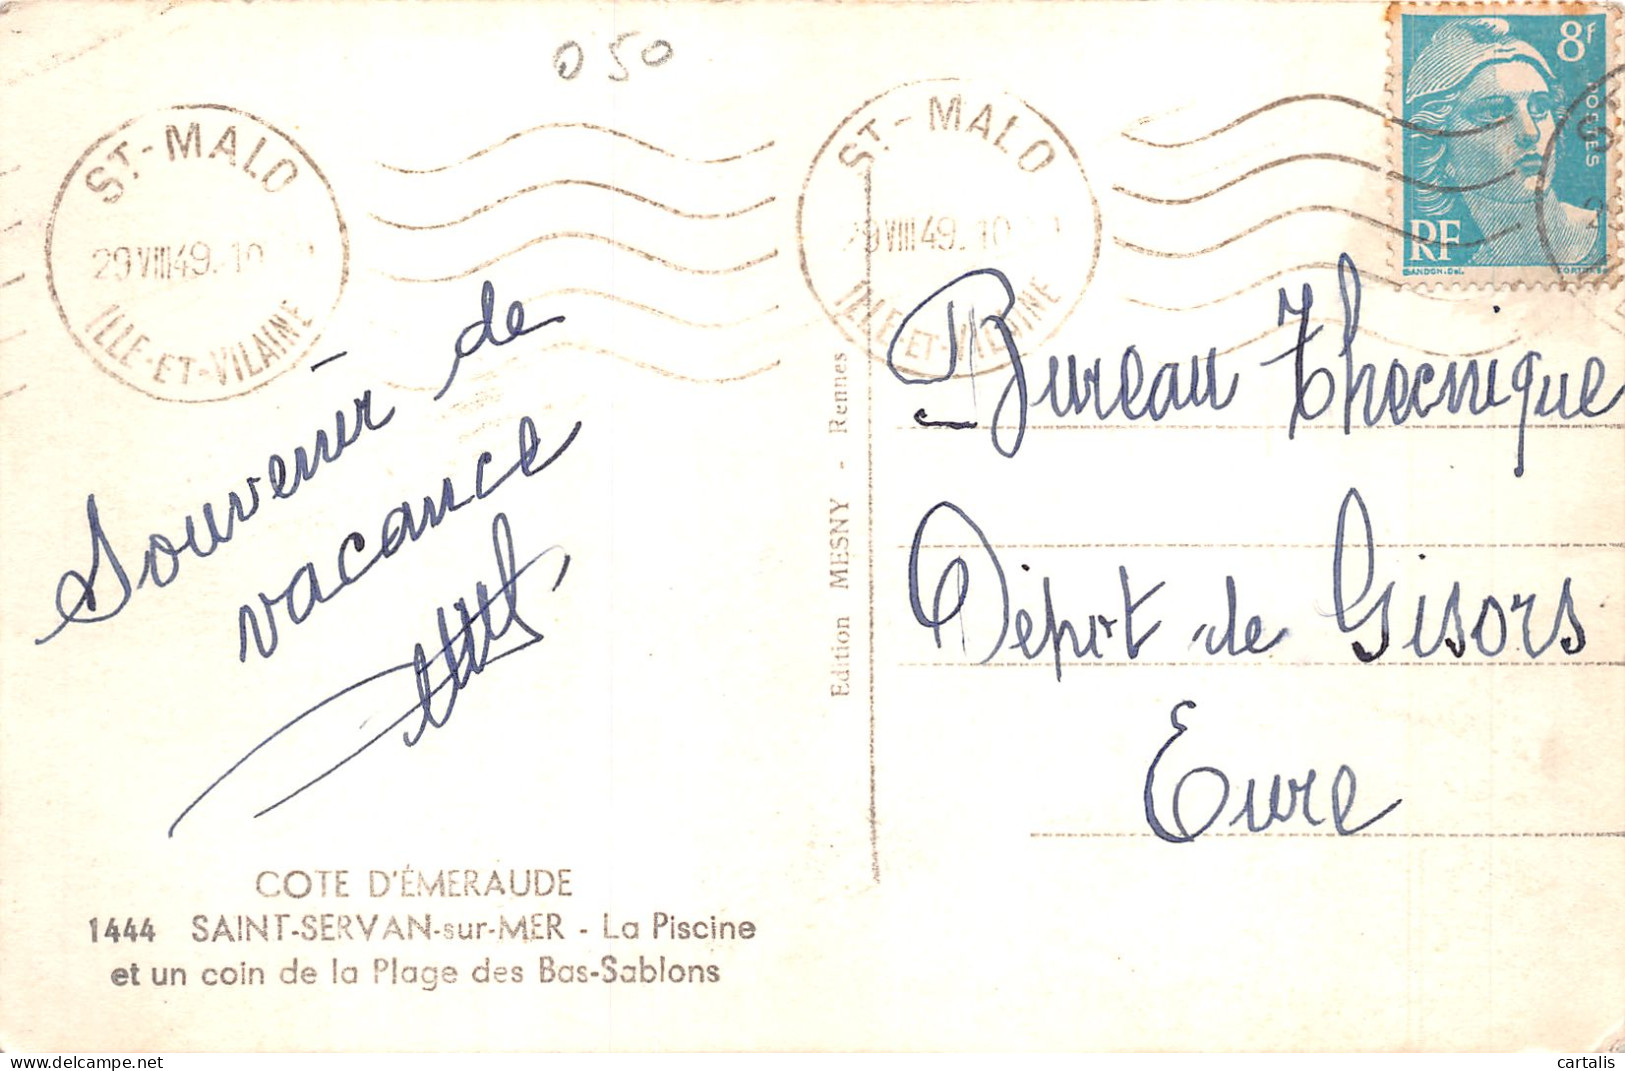 050
ST-MALO
29 VIII 49. 10
ILLE-ET-VILAINE
ST-MALO
29 VIII 49. 10
ILLE-ET-VILAINE
8F
POSTES
RF
GANDON.Del.
Souvenir de
vacance
Edition MESNY - Rennes
Bureau Thecnique
Dépot de Gisors
Eure
COTE D'ÉMERAUDE
1444 SAINT-SERVAN-sur-MER - La Piscine
et un coin de la Plage des Bas-Sablons
www.delcampe.net
cartalis